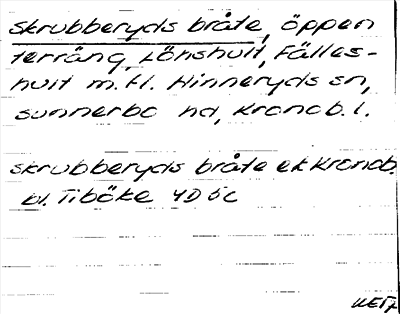 Skrubberyds bråte, öppen
terräng, Lönshult, Fälles-
hult m. fl. Hinneryds sn,
Sunnerbo hd, Kronob. l.
Skrubberyds bråte ek Kronob.
bl. Tiböke 4D 5c